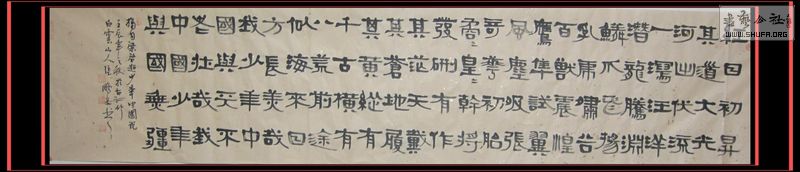 紅日初昇
其道大光
河出伏流
一瀉汪洋
潛龍騰淵
鱗爪飛揚
乳虎嘯谷
百獸震惶
鷹隼試翼
風塵吸張
奇花初胎
矞=皇=幹將
發硎有作
其芒天戴
其蒼地履
其黃縱有
千古橫有
八荒前途
似海來日
方長美哉
我少年中
國與天不
老壯哉我
中國少年
與國無疆
梁啟超少年中國說
壬辰年秋於古
白雲山人張
WWW.SHUFA.ORG